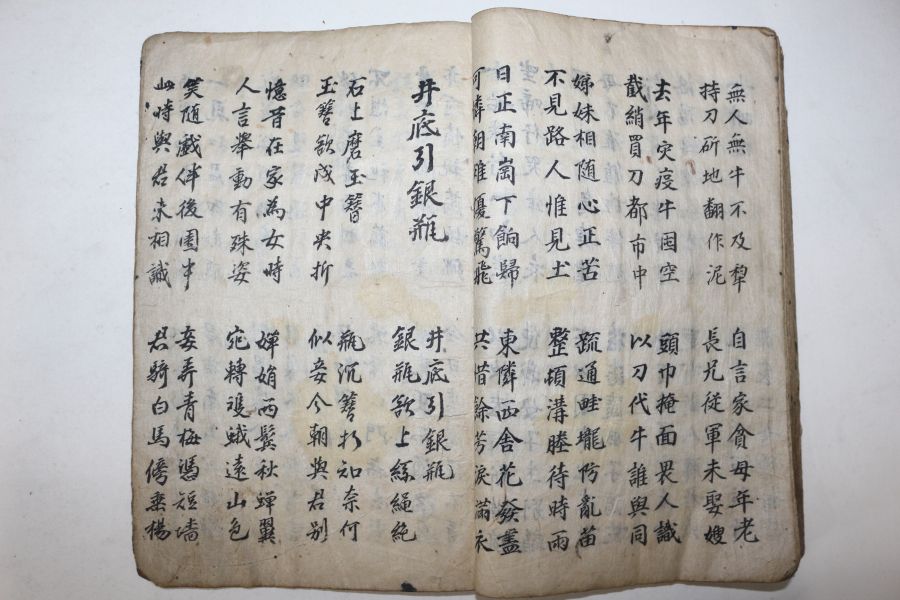 無人無牛不及犁
持刀斫地翻作泥
自言家貪母年老
長兄從軍未娶嫂
去年灾疫牛囤空
截綃買刀都市中
頭巾掩面畏人識
以刀代牛誰與同
姊妹相随心正苦
不見路人惟見土
疏通畦壠防亂苗
整頓溝塍待時雨
日正南崗下餉歸
可憐朝雉優驚飛
東隣西舍花發盡
共惜餘芳淚滿衣
井底引銀瓶
井底引銀瓶
銀瓶欲上絲繩絕
石上磨玉簪
玉簪欲成中央折
瓶沉簪折知奈何
似妾今朝與君別
憶昔在家為女時
人言舉動有殊姿
嬋娟兩鬢秋蟬翼
宛轉雙蛾遠山色
笑随戱伴後園中
此時與君未相識
妾弄青梅憑短墻
君騎白馬傍垂楊